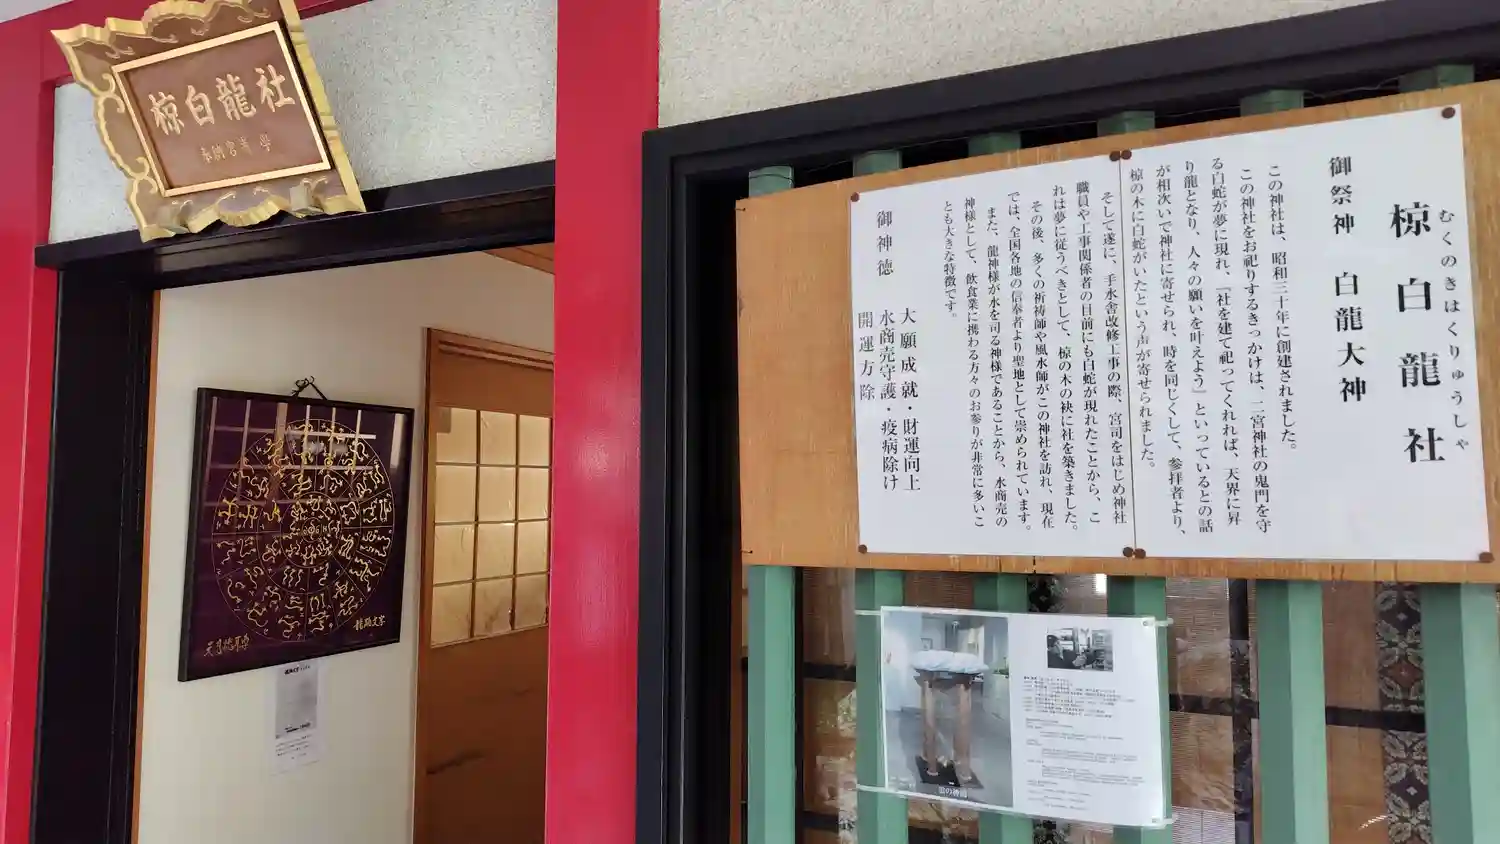 椋白龍社
椋白龍社
むくのきはくりゅうしゃ
御祭神 白龍大神
この神社は、昭和三十年に創建されました。
この神社をお祀りするきっかけは、二宮神社の鬼門を守
る白蛇が夢に現れ、「社を建て祀ってくれれば、天界に昇
り龍となり、人々の願いを叶えよう」といっているとの話
が相次いで神社に寄せられ、時を同じくして、参拝者より、
椋の木に白蛇がいたという声が寄せられました。
そして遂に、手水舎改修工事の際、宮司をはじめ神社
職員や工事関係者の目前にも白蛇が現れたことから、こ
れは夢に従うべきとして、椋の木の袂に社を築きました。
その後、多くの祈祷師や風水師がこの神社を訪れ、現在
では、全国各地の信奉者より聖地として崇められています。
また、龍神様が水を司る神様であることから、水商売の
神様として、飲食業に携わる方々のお参りが非常に多いこ
とも大きな特徴です。
御神徳
大願成就・財運向上
水商売守護・疫病除け
開運方除
龍踊文字
雲の神輿